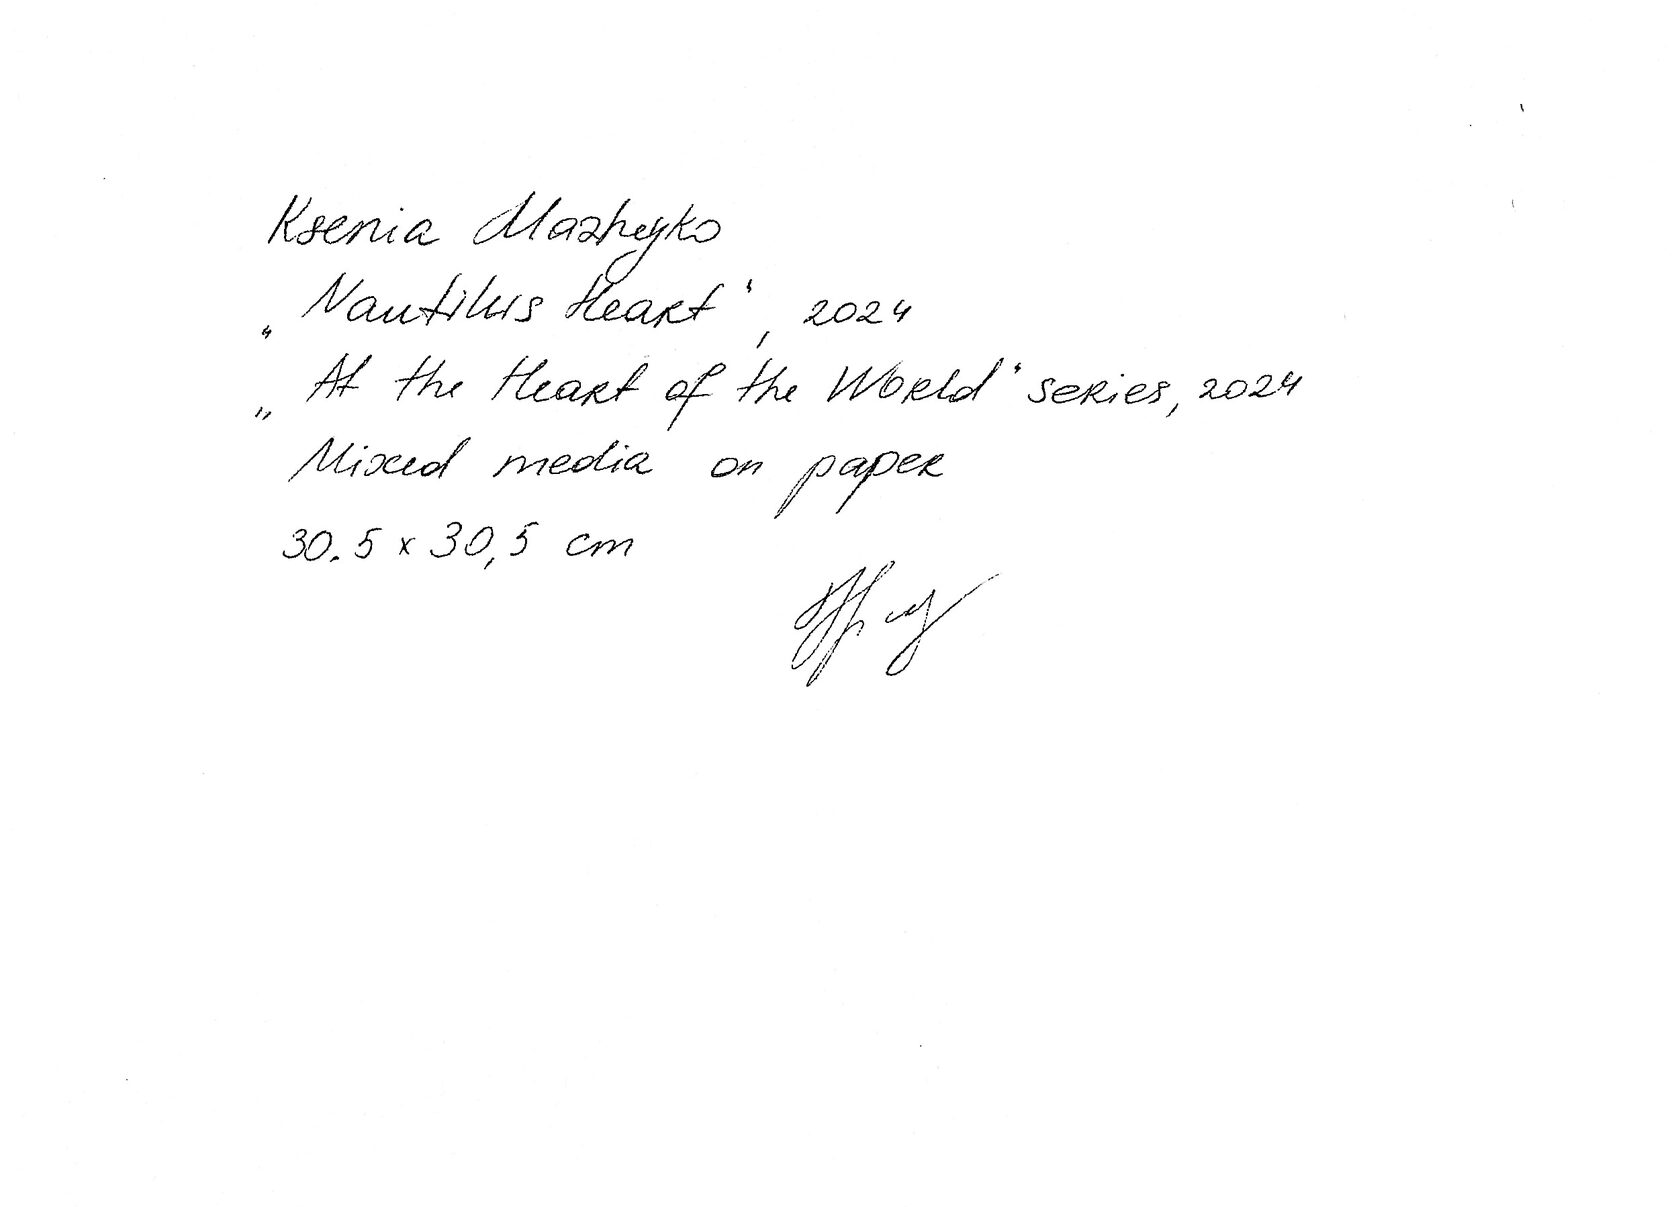 Ksenia Mazheyko
„Nautilus Heart“, 2024
„At the Heart of the World“ series, 2024
Mixed media on paper
30.5 x 30,5 cm